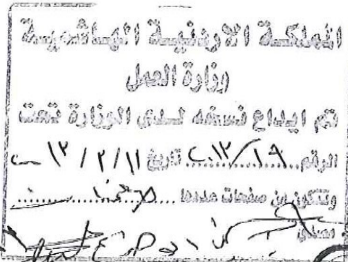 المملكة الاردنية الهاشمية
وزارة العمل
تم ايداع نسخه لدى الوزارة تحت
الرقم ٢٠١٢/١٩ تاريخ ١٢/٢/١١
وتتكون من صفحات عددها